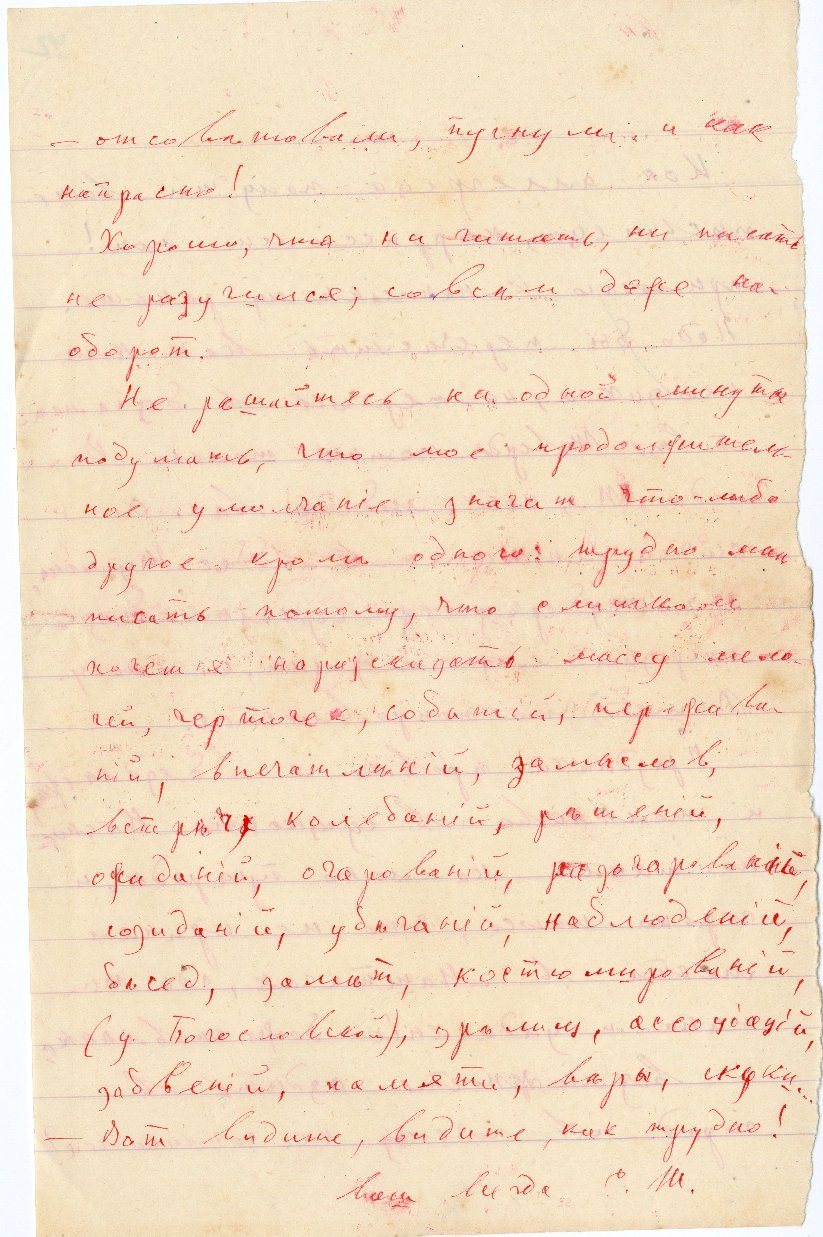 — отсоветовали, пугнули. и как
напрасно!
Хорошо, что ни читать, ни писать
не разучился; совсѣм даже на-
оборот.
Не решайтесь ни одной минуты
подумать, что мое продолжитель-
ное умолчаніе значит что-либо
другое кромѣ одного: трудно мнѣ
писать потому, что слишком
хочется поразсказать массу мело-
чей, черточек, событій, пережива-
ній, впечатлѣній, замыслов,
встрѣч, колебаній, рѣшеній,
ожиданій, очарованій, разочарованій,
созиданій, убѣганій, наблюденій,
бѣсед, замѣт, костюмированій,
(у Богословской), зрѣлищ, ассоціацій,
забвеній, памяти, вѣры, скуки...
— Вот видите, видите, как трудно!
ваш всегда